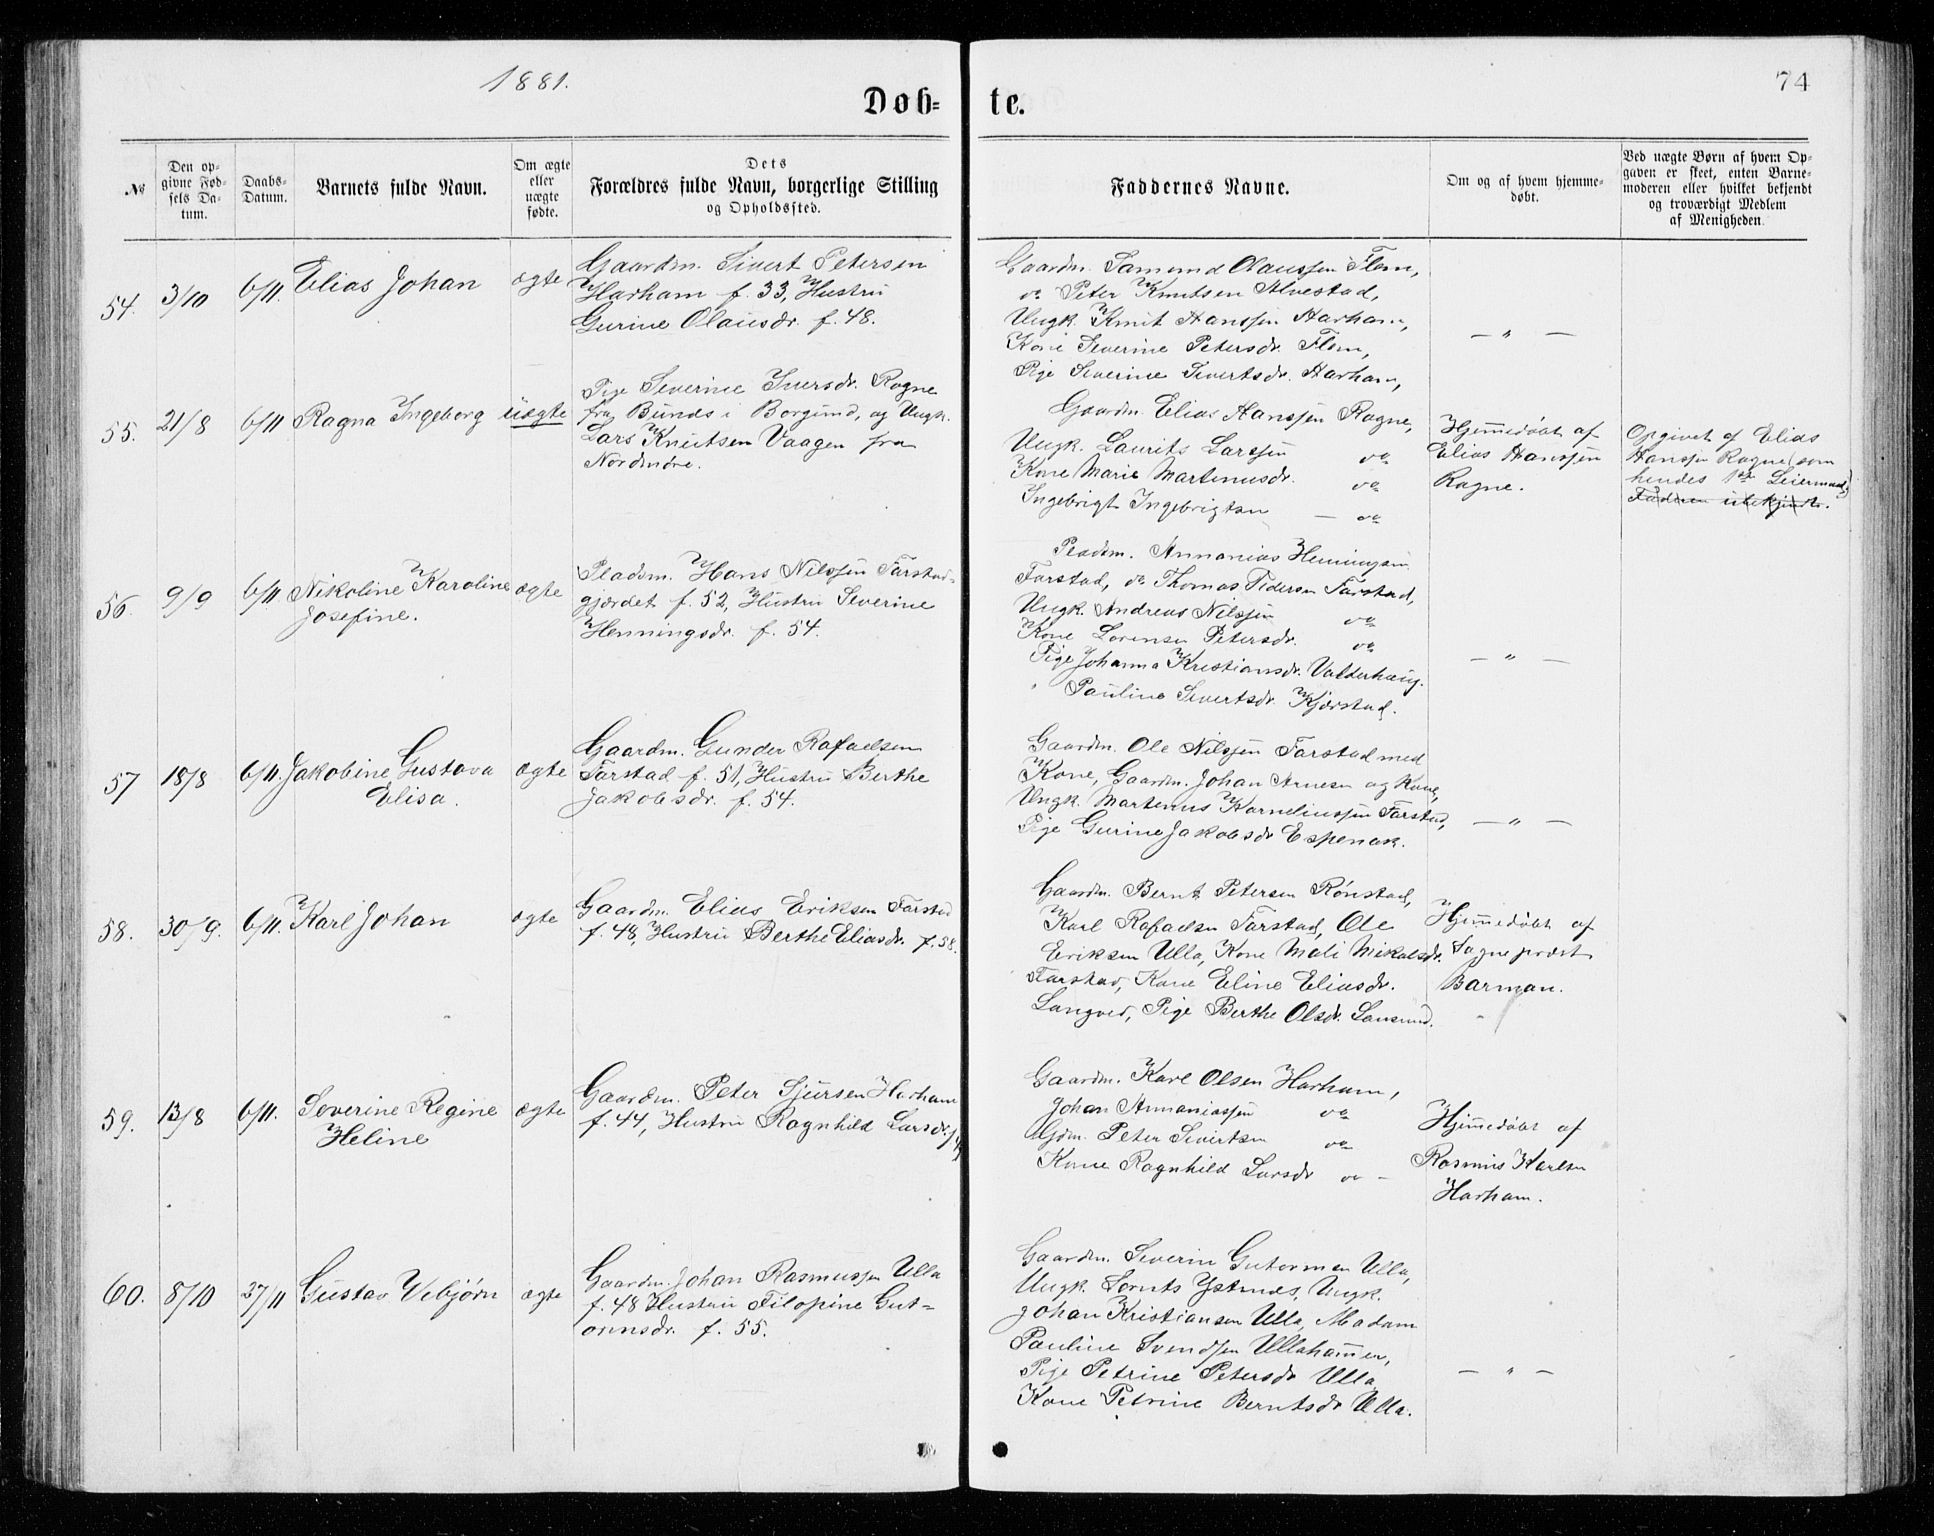 1881.
74
Døb-
te.
№
Den op-
givne Fød-
sels Da-
tum.
Daabs-
Datum.
Barnets fulde Navn.
Om ægte
eller
uægte
fødte.
Dets
Forældres fulde Navn, borgerlige Stilling
og Opholdssted.
Faddernes Navne.
Om og af hvem hjemme-
døbt.
Ved uægte Børn af hvem Op-
gaven er skeet, enten Barne-
moderen eller hvilket bekjendt
og troværdigt Medlem
af Menigheden.
54. 3/10 6/11. Elias Johan ægte
Gaardm. Sivert Petersen
Harham f. 33, Hustru
Gurine Olausdr. f. 48.
Gaardm. Samund Olaussen Flem,
do Peter Knutsen Alvestad,
Ungk. Knut Hanssen Harham,
Kone Severine Petersdr. Flem,
Pige Severine Sivertsdr. Harham,
— " —
55. 21/8 6/11 Ragna Ingeborg uægte
Pige Severine Iversdr. Rogne
fra Bunds i Borgund, og Ungk.
Lars Knutsen Vaagen fra
Nordmøre.
Gaardm. Elias Hanssen Rogne,
Ungk. Laurits Larssen do
Kone Marie Martinusdr. do
Ingebrigt Ingebrigtsen — do
Hjemmedøbt af
Elias Hanssen
Rogne.
Opgivet af Elias
Hanssen Rogne (som
hendes 1ste Leiermaal)
Faderen ubekjendt.
56. 9/9 6/11 Nikoline Karoline ægte
Josefine.
Pladsm. Hans Nilssen Farstad-
gjerdet f. 52, Hustru Severine
Henningsdr. f. 54.
Pladsm. Annanias Henningsen
Farstad, do Thomas Pedersen Farstad,
Ungk. Andreas Nilssen do
Kone Lorense Petersdr. do
Pige Johanna Kristiansdr. Valderhaug.
" Pauline Sivertsdr. Kjerstad.
— " —
57 18/8 6/11. Jakobine Gustava ægte
Elisa.
Gaardm. Gunder Rafaelsen
Farstad f. 51, Hustru Berthe
Jakobsdr. f. 54.
Gaardm. Ole Nilssen Farstad med
Kone, Gaardm. Johan Arnesen og Kone,
Ungk. Martinus Korneliussen Farstad,
Pige Gurine Jakobsdr Espenak.
— " —
58. 30/9. 6/11. Karl Johan ægte
Gaardm. Elias Eriksen Farstad
f. 48, Hustru Berthe Eliasdr. f. 58.
Gaardm. Bernt Petersen Rønstad,
Karl Rafaelsen Farstad, Ole
Eriksen Ulla, Kone Mali Mikalsdr.
Farstad, Kone Eline Eliasdr.
Longved, Pige Berthe Olsdr.
Hjemmedøbt af
Sogneprest
Barman.
59. 13/8 6/11. Severine Regine ægte
Heline
Gaardm. Peter Sjursen Harham
f. 44, Hustru Ragnhild Larsdr.
Gaardm. Karl Olsen Harham,
Johan Annaniassen do
Gdm. Peter Sivertsen do
Kone Ragnhild Larsdr do —
Hjemmedøbt af
Rasmus Karlsen
Harham.
60. 8/10 27/11 Gustav Vebjørn ægte
Gaardm. Johan Rasmussen Ulla
f. 48 Hustru Filopine Gut-
ormsdr. f. 55.
Gaardm. Severin Gutormsen Ulla,
Ungk. Lorents Ystenes, Ungk.
Johan Kristiansen Ulla, Madam
Pauline Svendsen Ullahammer,
Pige Petrine Petersdr Ulla
Kone Petrine Berntsdr Ulla.
— " —